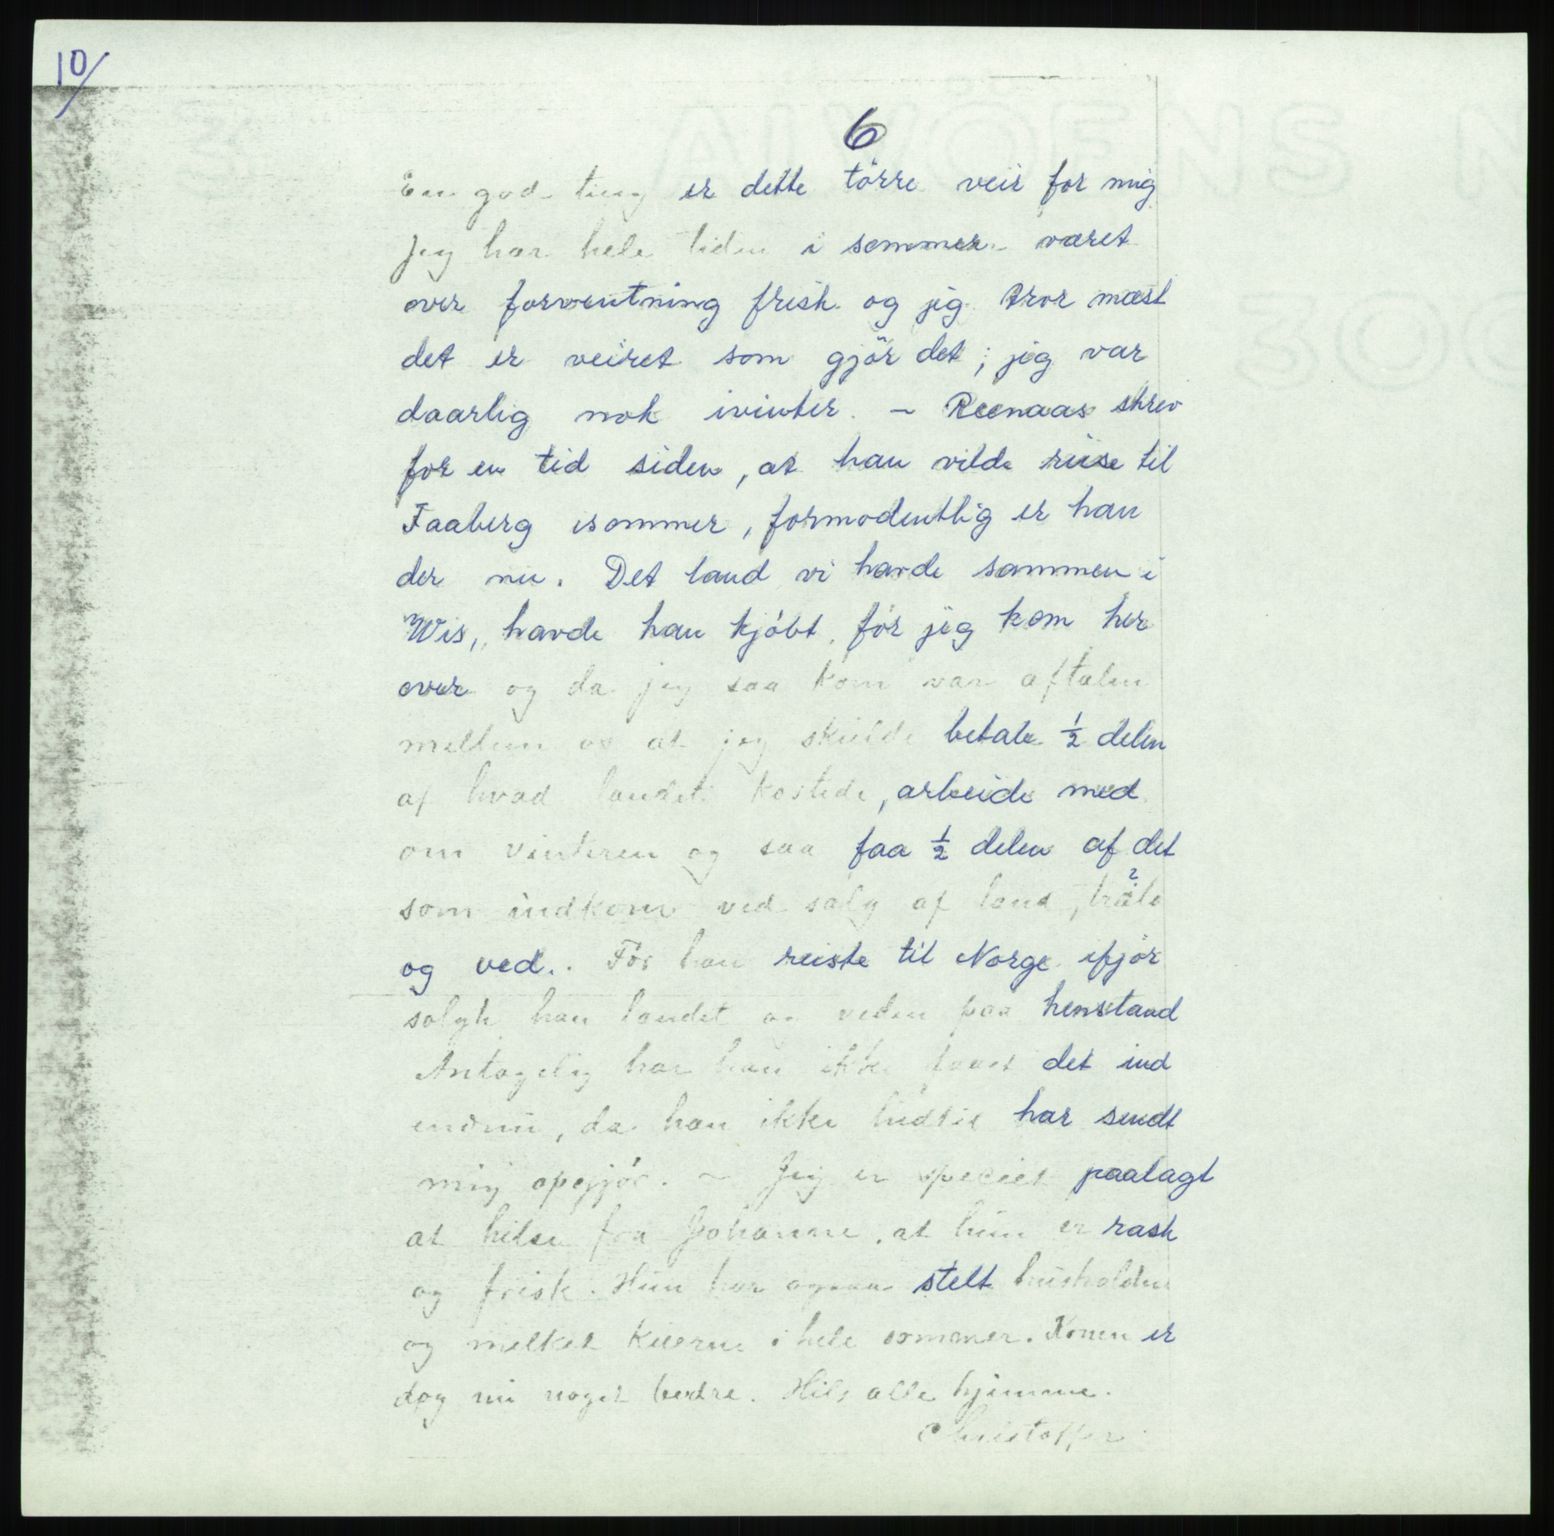 10/
6
En god ting er dette törre veir for mig
Jeg har hele tiden i sommer været
over forventning frisk og jeg tror mæst
det er veiret som gjör det; jeg var
daarlig nok ivinter. – Reenaas skrev
for en tid siden, at han vilde reise til
Faaberg isommer, formodentlig er han
der nu. Det land vi havde sammen i
Wis., havde han kjöbt för jeg kom her
over og da jeg saa kom var aftalen
mellem os at jeg skulde betale ½ delen
af hvad landet kostede, arbeide med
om vinteren og saa faa ½ delen af det
som indkom ved salg af land,
og ved. För han reiste til Norge ifjör
solgte han landet og veden paa henstand
Antagelig har han ikke faaet det ind
endnu, da han ikke hidtil har sendt
mig opgjör. – Jeg er speciel paalagt
at hilse fra Johanne, at hun er rask
og frisk. Hun har ogsaa stelt husholden
og melket kuerne i hele sommer. Konen er
dog nu noget bedre. Hils alle hjemme.
Christoffer